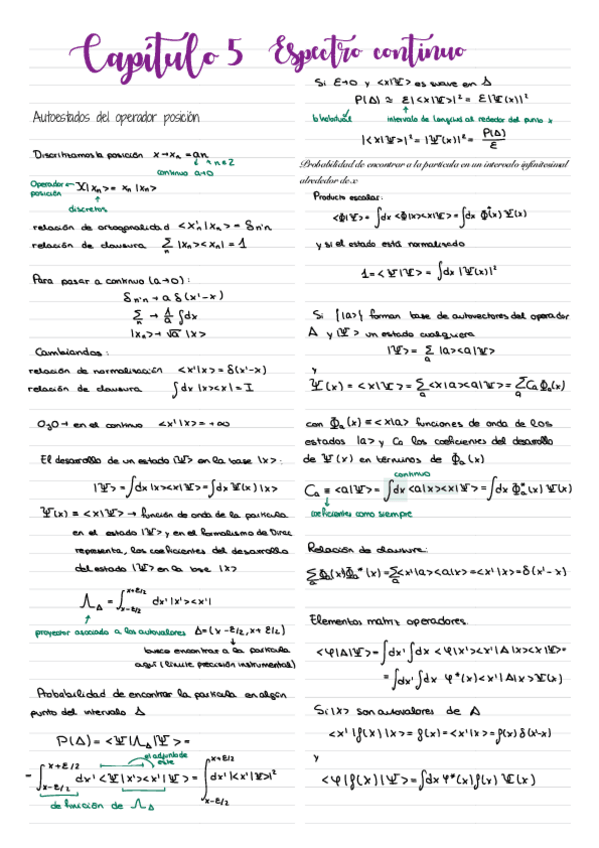 Capítulo 5 Espectro continuo
Autoestados del operador posición
Discretizamos la posición x→xₙ = an
↑ ↳ n∈Z
continuo a→0
Operador posición ← X|xₙ> = xₙ |xₙ>
↑
discretos
relación de ortogonalidad <x'ₙ|xₙ> = δₙ'ₙ
relación de clausura Σₙ |xₙ><xₙ| = 1
Para pasar a continuo (a→0):
δₙ'ₙ → a δ(x'-x)
Σₙ → 1/a ∫dx
|xₙ> → √a |x>
Cambiandas:
relación de normalización <x'|x> = δ(x'-x)
relación de clausura ∫dx |x><x| = I
OJO → en el continuo <x'|x> = +∞
El desarrollo de un estado |Ψ> en la base |x>:
|Ψ> = ∫dx |x><x|Ψ> = ∫dx Ψ(x) |x>
Ψ(x) ≡ <x|Ψ> → función de onda de la partícula
en el estado |Ψ> y en el formalismo de Dirac
representa, los coeficientes del desarrollo
del estado |Ψ> en la base |x>
Λ_Δ = ∫_{x-ε/2}^{x+ε/2} dx' |x'><x'|
↑
proyector asociado a los autovalores Δ=(x-ε/2, x+ε/2)
↓
busco encontrar a la partícula
aquí (límite precisión instrumental)
Probabilidad de encontrar la partícula en algún
punto del intervalo Δ
P(Δ) = <Ψ|Λ_Δ|Ψ> =
el adjunto de este
= ∫_{x-ε/2}^{x+ε/2} dx' <Ψ|x'><x'|Ψ> = ∫_{x-ε/2}^{x+ε/2} dx' |<x'|Ψ>|²
definición de Λ_Δ
Si ε→0 y <x|Ψ> es suave en Δ
P(Δ) ≃ ε|<x|Ψ>|² = ε|Ψ(x)|²
intervalo de longitud al rededor del punto x
|<x|Ψ>|² = |Ψ(x)|² = P(Δ)/ε
Probabilidad de encontrar a la partícula en un intervalo infinitesimal
alrededor de x
Producto escalar:
<Φ|Ψ> = ∫dx <Φ|x><x|Ψ> = ∫dx Φ*(x) Ψ(x)
y si el estado está normalizado
1 = <Ψ|Ψ> = ∫dx |Ψ(x)|²
Si {|a>} forman base de autovectores del operador
A y |Ψ> un estado cualquiera
|Ψ> = Σₐ |a><a|Ψ>
y
Ψ(x) = <x|Ψ> = Σₐ <x|a><a|Ψ> = Σₐ Cₐ Φₐ(x)
con Φₐ(x) ≡ <x|a> funciones de onda de los
estados |a> y Cₐ los coeficientes del desarrollo
de Ψ(x) en términos de Φₐ(x)
continuo
Cₐ ≡ <a|Ψ> = ∫dx <a|x><x|Ψ> = ∫dx Φₐ*(x) Ψ(x)
↓
coeficientes como siempre
Relación de clausura:
Σₐ Φₐ(x)Φₐ*(x) = Σₐ <x'|a><a|x> = <x'|x> = δ(x'-x)
Elementos matriz operadores.
<φ|A|Ψ> = ∫dx' ∫dx <φ|x'><x'|A|x><x|Ψ> =
= ∫dx' ∫dx φ*(x) <x'|A|x> Ψ(x)
Si |x> son autovalores de A
<x'|f(x)|x> = f(x) = <x'|x> = f(x) δ(x'-x)
y
<φ|f(x)|Ψ> = ∫dx φ*(x) f(x) Ψ(x)